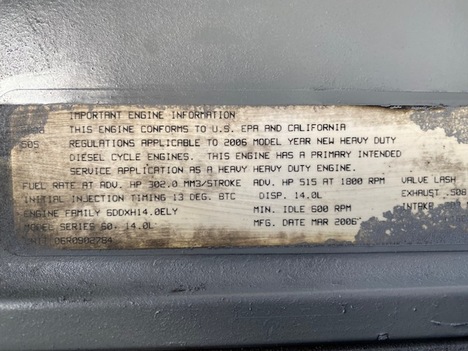 IMPORTANT ENGINE INFORMATION
THIS ENGINE CONFORMS TO U.S. EPA AND CALIFORNIA
REGULATIONS APPLICABLE TO 2006 MODEL YEAR NEW HEAVY DUTY
DIESEL CYCLE ENGINES. THIS ENGINE HAS A PRIMARY INTENDED
SERVICE APPLICATION AS A HEAVY HEAVY DUTY ENGINE.
FUEL RATE AT ADV. HP 302.0 MM3/STROKE ADV. HP 515 AT 1800 RPM VALVE LASH
INITIAL INJECTION TIMING 13 DEG. BTC DISP. 14.0L EXHAUST .508
ENGINE FAMILY 6DDXH14.0ELY MIN. IDLE 600 RPM
MODEL SERIES 60, 14.0L MFG. DATE MAR 2006
UNIT 06R0902784